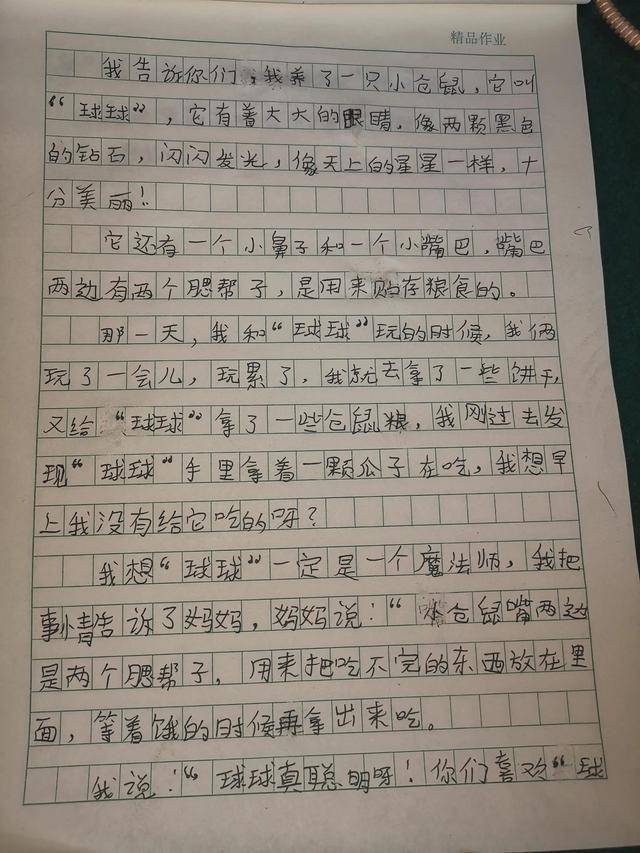 精品作业
我告诉你们，我养了一只小仓鼠，它叫
“球球”，它有着大大的眼睛，像两颗黑色
的钻石，闪闪发光，像天上的星星一样，十
分美丽！
它还有一个小鼻子和一个小嘴巴，嘴巴
两边有两个腮帮子，是用来贮存粮食的。
那一天，我和“球球”玩的时候，我俩
玩了一会儿，玩累了，我就去拿了一些饼干，
又给“球球”拿了一些仓鼠粮，我刚过去发
现“球球”手里拿着一颗瓜子在吃，我想早
上我没有给它吃的呀？
我想“球球”一定是一个魔法师，我把
事情告诉了妈妈，妈妈说：“小仓鼠嘴两边
是两个腮帮子，用来把吃不完的东西放在里
面，等着饿的时候再拿出来吃。
我说：“球球真聪明呀！你们喜欢“球